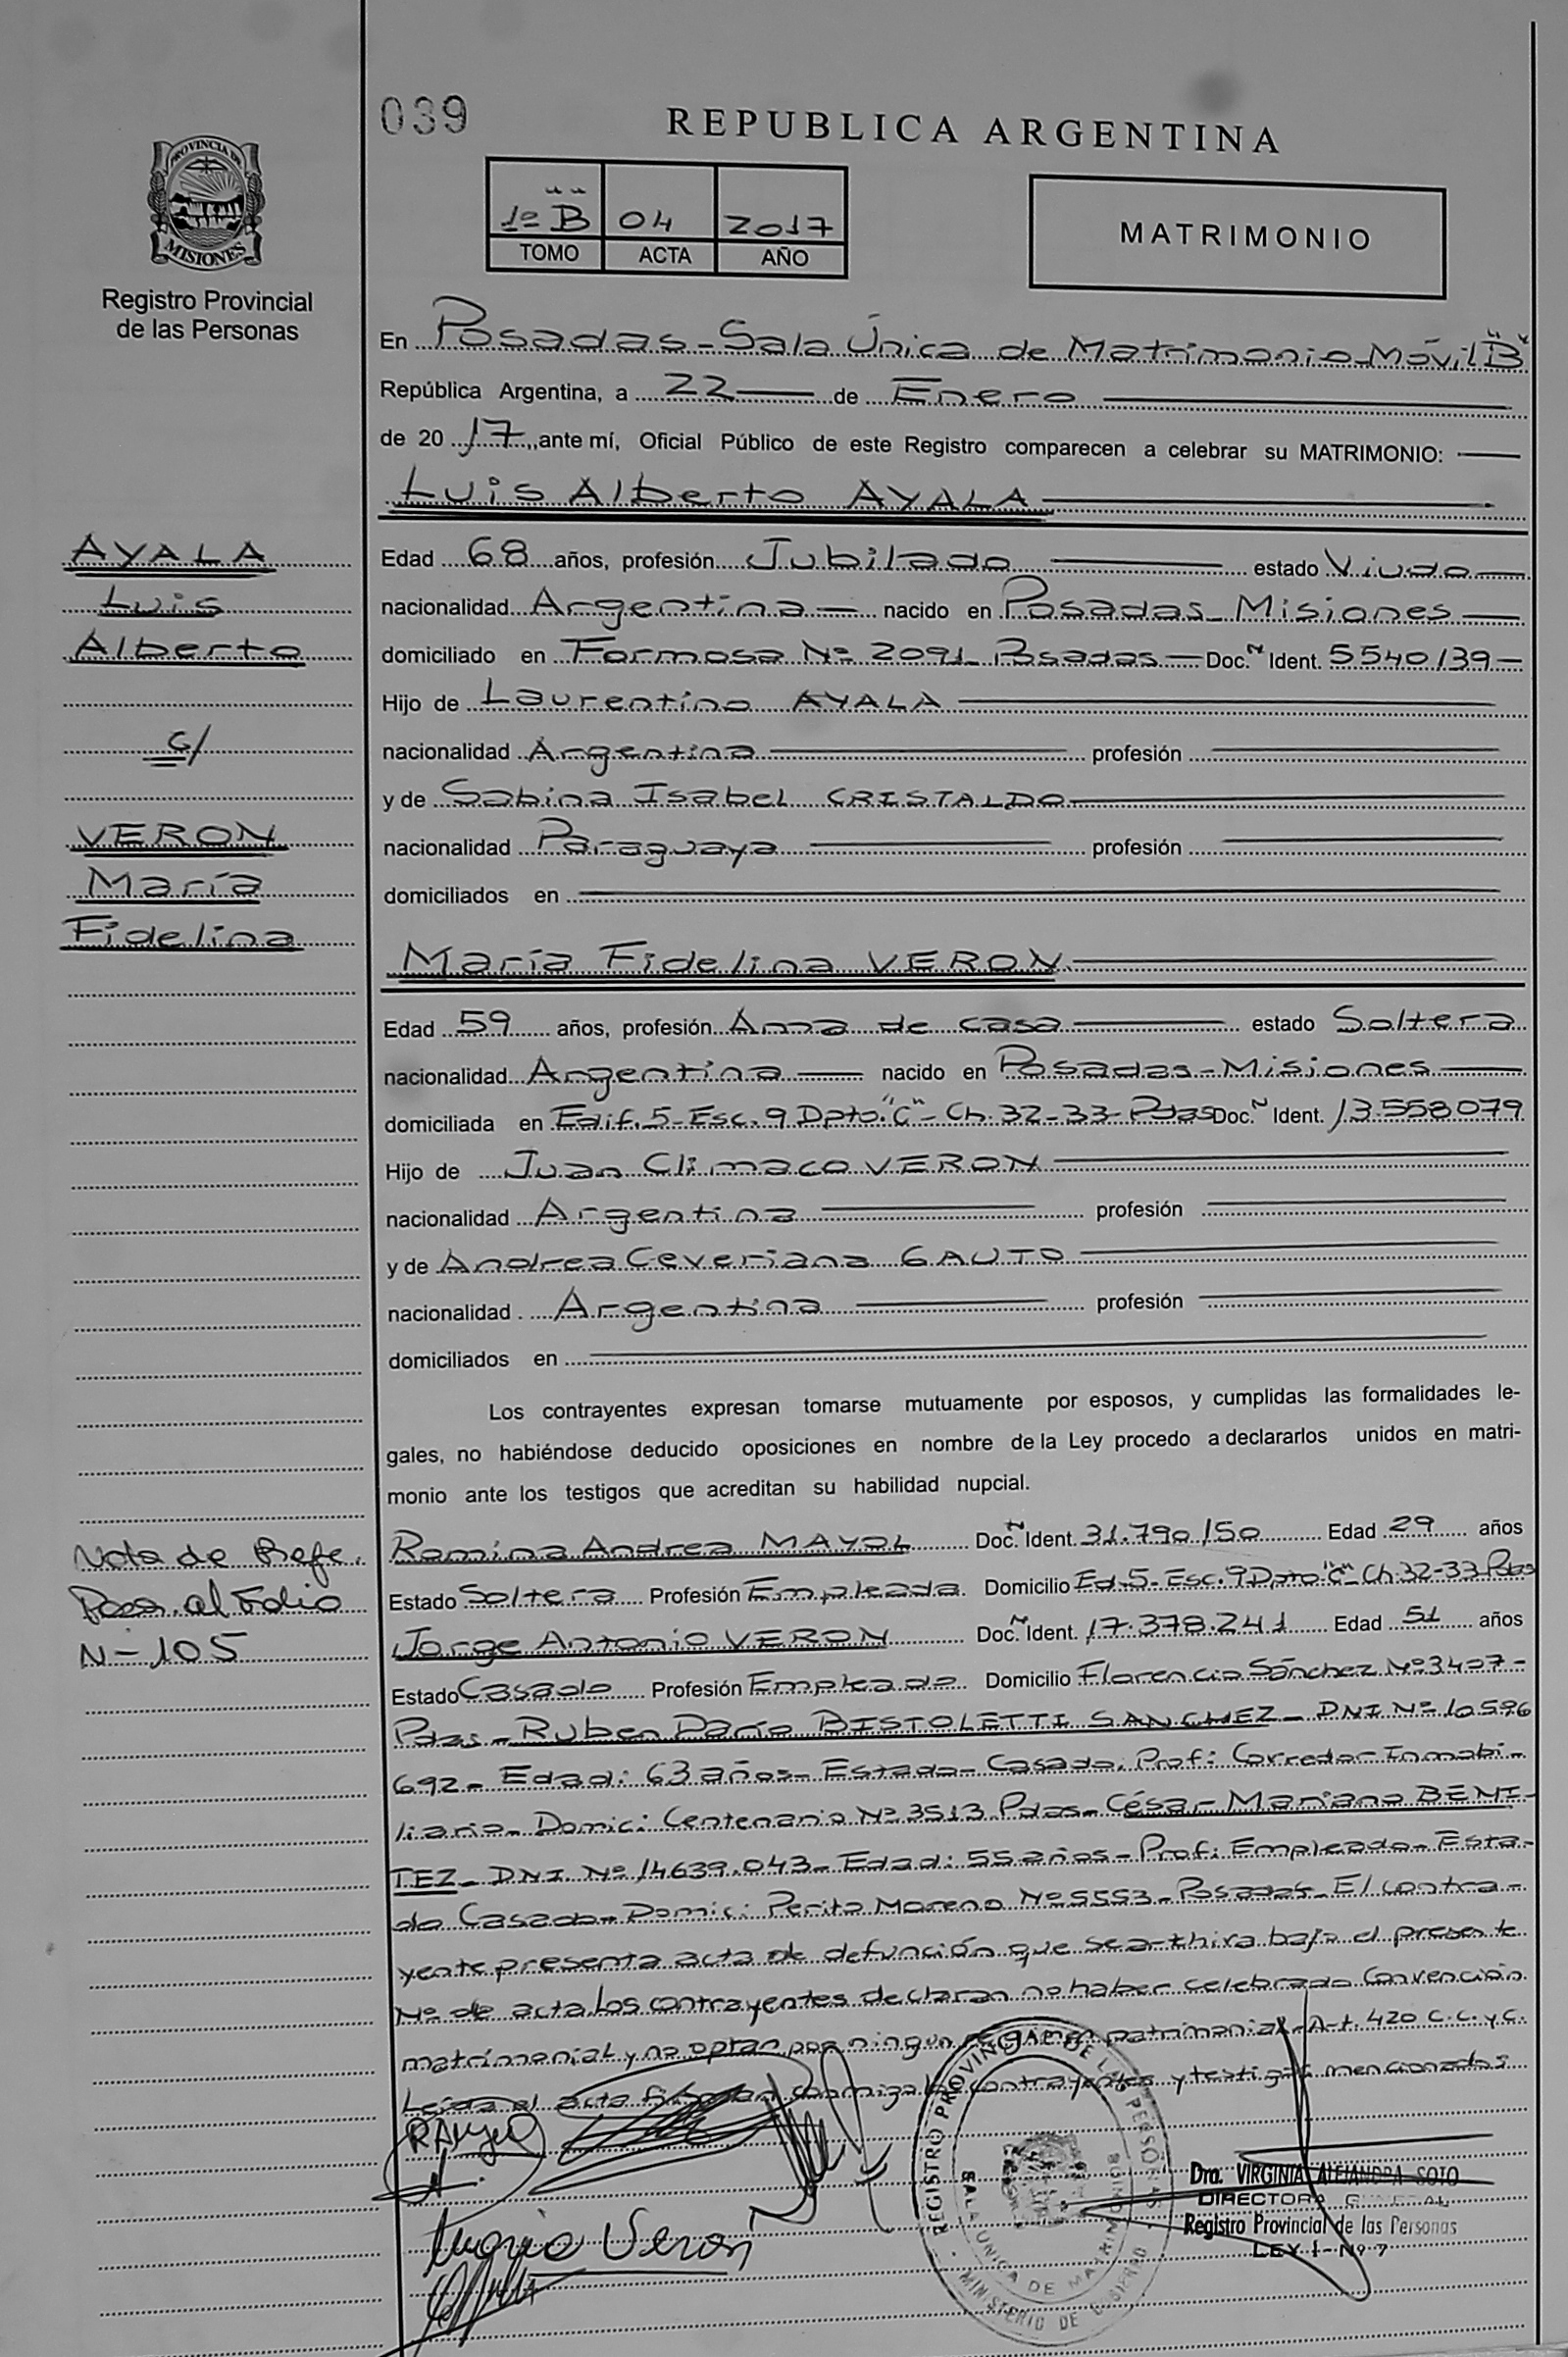 039
REPUBLICA ARGENTINA
PROVINCIA DE
MISIONES
Registro Provincial
de las Personas
1º "B" 04 2017
TOMO ACTA AÑO
MATRIMONIO
En Posadas-Sala Única de Matrimonio-Móvil "B"
República Argentina, a 22 de Enero
de 2017, ante mí, Oficial Público de este Registro comparecen a celebrar su MATRIMONIO:
Luis Alberto AYALA
AYALA
Luis
Alberto
c/
VERON
María
Fidelina
Edad 68 años, profesión Jubilado estado Viudo
nacionalidad Argentina nacido en Posadas-Misiones
domiciliado en Formosa Nº 2091-Posadas Doc. Ident. 5540139
Hijo de Laurentino AYALA
nacionalidad Argentina profesión
y de Sabina Isabel CRISTALDO
nacionalidad Paraguaya profesión
domiciliados en
María Fidelina VERON
Edad 59 años, profesión Ama de casa estado Soltera
nacionalidad Argentina nacido en Posadas-Misiones
domiciliada en Edif. 5-Esc. 9 Dpto. "C"-Ch. 32-33-Pdas Doc. Ident. 13.558.079
Hijo de Juan Climaco VERON
nacionalidad Argentina profesión
y de Andrea Ceveriana GAUTO
nacionalidad Argentina profesión
domiciliados en
Los contrayentes expresan tomarse mutuamente por esposos, y cumplidas las formalidades le-
gales, no habiéndose deducido oposiciones en nombre de la Ley procedo a declararlos unidos en matri-
monio ante los testigos que acreditan su habilidad nupcial.
Nota de Refe.
Pasa al Folio
N-105
Romina Andrea MAYOL Doc. Ident. 31.790.150 Edad 29 años
Estado Soltera Profesión Empleada Domicilio Ed.5-Esc.9 Dpto "C"-Ch.32-33 Pdas
Jorge Antonio VERON Doc. Ident. 17.378.241 Edad 51 años
Estado Casado Profesión Empleado Domicilio Florencio Sánchez Nº 3407-
Pdas-Ruben Darío BISTOLETTI SANCHEZ-DNI Nº 10.596
692-Edad: 63 años-Estado-Casado. Prof: Corredor Inmobi-
liario-Domic: Centenario Nº 3513 Pdas-César Mariano BENI-
TEZ-DNI. Nº 14639.043-Edad: 55 años-Prof: Empleado-Esta-
do Casado-Domic: Perito Moreno Nº 5553-Posadas-El contra-
yente presenta acta de defunción que se archiva bajo el presente
Nº de acta los contrayentes declaran no haber celebrado Convención
matrimonial y no optan por ningun régimen patrimonial-Art. 420 C.C.y C.
Leída el acta firman conmigo los contrayentes y testigos mencionados
María Veron
REGISTRO PROVINCIAL DE LAS PERSONAS
SALA UNICA DE MATRIMONIO
MINISTERIO DE GOBIERNO
Dra. VIRGINIA ALEJANDRA SOTO
DIRECTORA GENERAL
Registro Provincial de las Personas
LEY I - Nº 7